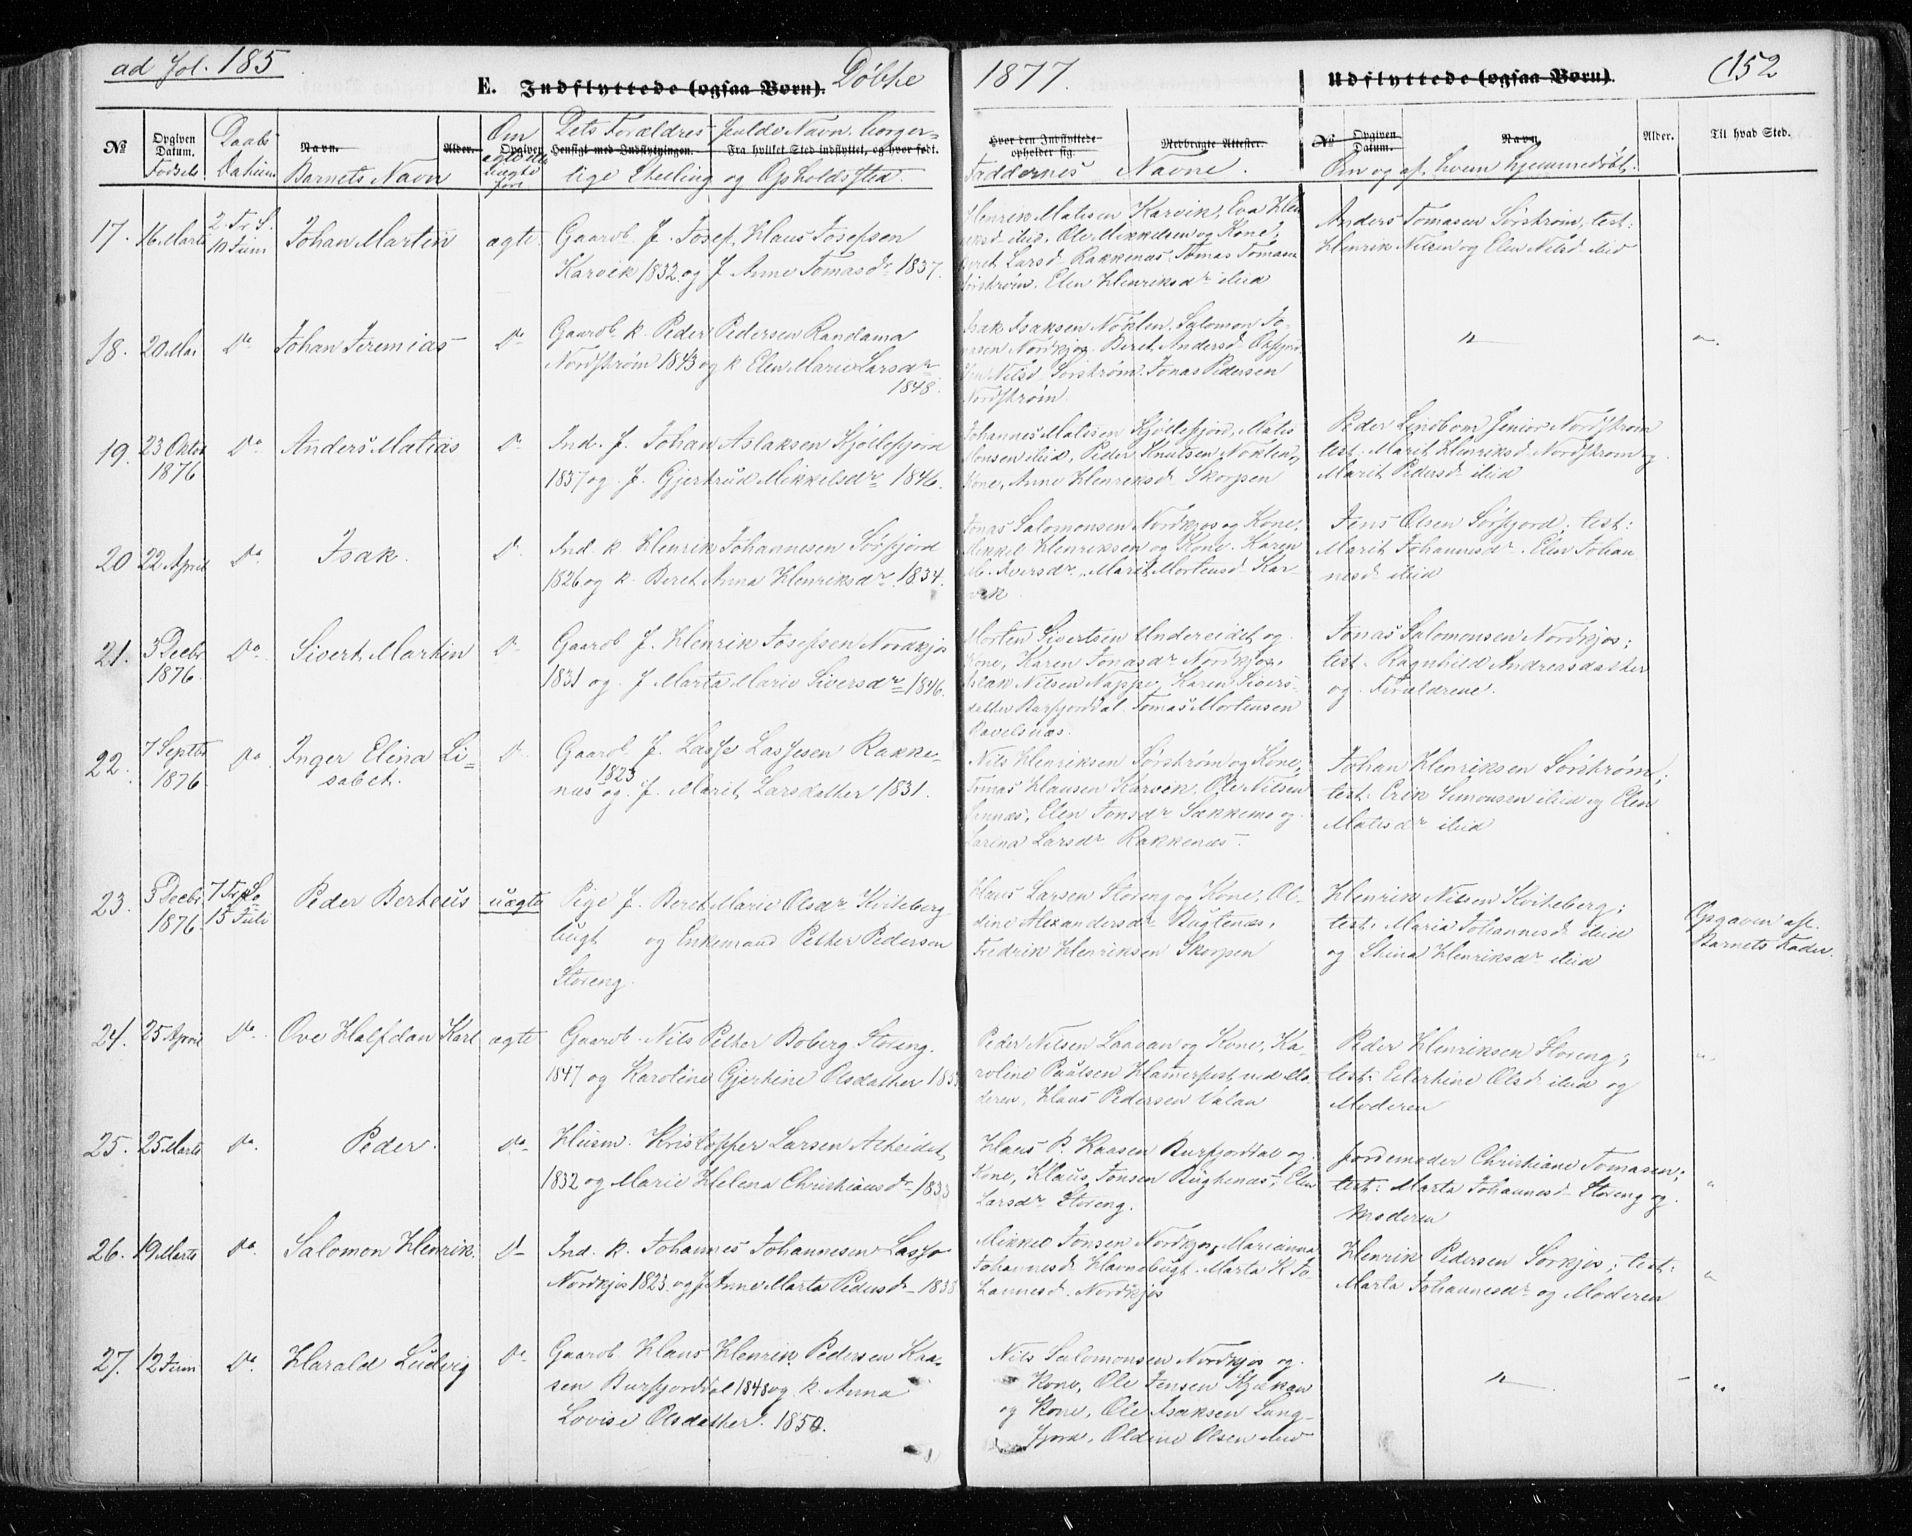 ad fol. 185
E. Indflyttede (ogsaa Børn). Døbte
1877.
Udflyttede (ogsaa Børn).
152
No
Opgiven Datum. Fødsels
Daabs Datum
Navn. Barnets Navn
Alder.
Om ægte eller uægte
Dets Forældres fulde Navn, borger-
Hensigt med Indflytningen.
Fra hvilket Sted indflyttet, og hvor født.
lige Stilling og Opholdssted.
Hvor den Indflyttede opholder sig.
Medbragte Attester.
Faddernes Navne.
No
Opgiven Datum.
Navn.
Alder.
Til hvad Sted.
Om og af hvem hjemmedøbt.
17. 16 Marts 2. Tr. S. 10 Juni Johan Martin ægte Gaarb. f. Josef Klaus Josefsen
Karvik 1832 og f. Anne Tomasdr 1837.
Henrik Matisen Karvik, Eva Hen
riksd ibid, Ole Mikkelsen og Kone,
Beret Larsd Rakkenæs, Tomas Tomasen
Sørstrøm, Elen Henriksdr ibid
Anders Tomasen Sørstrøm, test:
Henrik Nilsen og Elen Nilsd ibid
18. 20 Mai Do Johan Jeremias Do Gaarb k. Peder Pedersen Randama
Nordstrøm 1843 og k Elen Marie Larsdr
1848.
Isak Isaksen Noklen, Salomon Jo-
nasen Nordkjos, Beret Andersd Oxfjord
Elen Nilsd Sørstrøm, Jonas Pedersen
Nordstrøm.
19. 23 Oktbr 1876 Do Anders Matias Do Ind. f. Johan Aslaksen Kjøllefjord
1837 og f. Gjertrud Mikkelsdr 1846.
Johannes Matisen Kjøllefjord, Matis
Monsen ibid, Peder Knutsen Noklen,
Kone, Anne Henriksd Skorpen
Peder Lindbom Junior Nordstrøm
test: Marit Henriksd Nordstrøm og
Marit Pedersd ibid
20 22 April Do Isak. Do Ind. k. Henrik Johannesen Sørfjord
1826 og k. Beret Anna Henriksdr. 1834.
Jonas Salomonsen Nordkjos og Kone,
Mikkel Henriksen og Kone, Karen
M. Iversdr, Marit Mortensd Kar-
vik
Jens Olsen Sørfjord; test:
Marit Johannesdr. Elen Johan
nesd ibid
21. 3 Decbr 1876. Do Sivert Martin Do Gaarb f. Henrik Josefsen Nordkjos
1831 og f Marta Marie Siversdr 1846.
Morten Sivertsen Undereidet og
Kone, Karen Jonasdr Nordkjos,
Aslak Nilsen Nappe, Karen Sivers-
datter Burfjorddal, Tomas Mortensen
Ravelsnæs.
Jonas Salomonsen Nordkjos;
test: Ragnhild Andreasdatter
og Forældrene.
22. 7 Septbr 1876 Do Inger Elina Li-
sabet.
Do Gaarb f. Lasse Lassesen Rakke-
næs 1823 og f. Marit Larsdatter 1831.
Nils Henriksen Sørstrøm og Kone,
Tomas Klausen Karvik, Ole Nilsen
Elen Jonsdr Sakkemo og
Larsdr Rakkenæs.
Johan Henriksen Sørstrøm;
test: Erik Simonsen ibid og Elen
Matisdr ibid
23. 5 Decbr 1876 7 Tr. S. 15 Juli Peder Berteus uægte Pige f. Beret Marie Olsdr Kviteberg
bugt og Enkemand Petter Pedersen
Storeng.
Klaus Larsen Storeng og Kone, Ol-
dine Alexandersdr Bugtenæs,
Fredrik Henriksen Skorpen
Henrik Nilsen Kviteberg;
test: Maria Johannesd ibid
og Stina Henriksdr ibid
Opgaven af
Barnets Fader.
24. 25 April Do Ove Halfdan Karl ægte Gaarb. Nils Petter Boberg Storeng.
1847 og Karoline Gjertine Olsdatter
Peder Nilsen Laavan og Kone, Ka-
roline Paulsen Hamerfest ved Mo-
deren, Klaus Pedersen Valan
Peder Henriksen Storeng;
test: Edertine Olsd ibid og
Moderen
"
25. 25 Marts Do Peder. Do Husm. Kristoffer Larsen Alteidet
1832 og Marie Helena Christiansdr 1833
Klaus P. Kaasen Burfjorddal og
Kone, Klaus Jonsen Bugtenæs, Elen
Larsdr Storeng.
Jordemoder Christiane Tomasen;
test: Marta Johannesd Storeng og
Moderen
"
26. 19 Marts Do Salomon Henrik Do Ind. k. Johannes Johannesen Lasso
Nordkjos 1823 og f. Anne Marta Pedersd 1838
Mikkel Jonsen Nordkjos, Marianna
Johannesd Havnebugt, Marta K Jo-
hannesd. Nordkjos
Henrik Pedersen Sørkjos; test:
Marta Johannesdr og Moderen
"
27. 12 Juni Do Harald Ludvig Do Gaarb Klaus Henrik Pedersen Kaa-
sen Burfjorddal 1848 og k. Anna
Lovise Olsdatter. 1850.
Nils Salomonsen Nordkjos og
Kone, Ole Jensen Kjækan
og Kone, Ole Isaksen Lang-
fjord, Oldine Olsen ibid
"
"